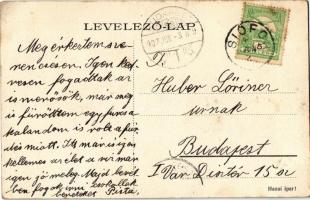 LEVELEZŐ-LAP.
Megérkeztem sze-
rencsésen. Igen ked-
vesen fogadtak az
ismerősök, már meg
is fürödtem egy furcsa
kalandom is volt a für-
dés miatt. Itt már is igen
kellemes az élet a víz már
igen jó meleg. Majd bővet
ben fogok írni csókollak
benneteket Pista.
SIÓFOK
Huber Lőrincz
úrnak
Budapest
I Vár. Dísz tér 15 sz
Hazai ipar!